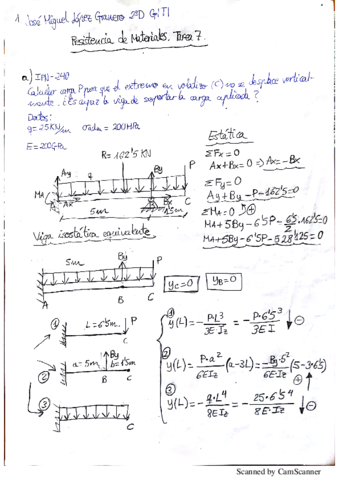 1 José Miguel López Granero 2ºD GITI
Resistencia de Materiales. Tarea 7.
a) IPN-240
Calcular carga P para que el extremo en voladizo (C) no se desplace vertical-
mente. ¿Es capaz la viga de soportar la carga aplicada?
Datos:
q=25KN/m σadm=200MPa
E=200GPa
R=162'5 KN
Ay q By P
MA Ax Bx
A B C
5m 1'5m
Estática
ΣFx=0
Ax+Bx=0 ⇒ Ax=-Bx
ΣFy=0
Ay+By-P-162'5=0
ΣMA=0 ⊕
MA+5By-6'5P-6'5/2·162'5=0
MA+5By-6'5P-528'125=0
Viga isostática equivalente
5m By P
A B C
yC=0 yB=0
① L=6'5m. P
C
① y(L)=-P·L³/3EI=-P·6'5³/3EI ↓⊖
② a=5m By b=1'5m
B C
② y(L)=P·a²/6EIz(a-3L)=-By·5²/6E·Iz(5-3·6'5) ↑⊕
③ C
③ y(L)=-q·L⁴/8EIz=-25·6'5⁴/8E·Iz ↓⊖
Scanned by CamScanner